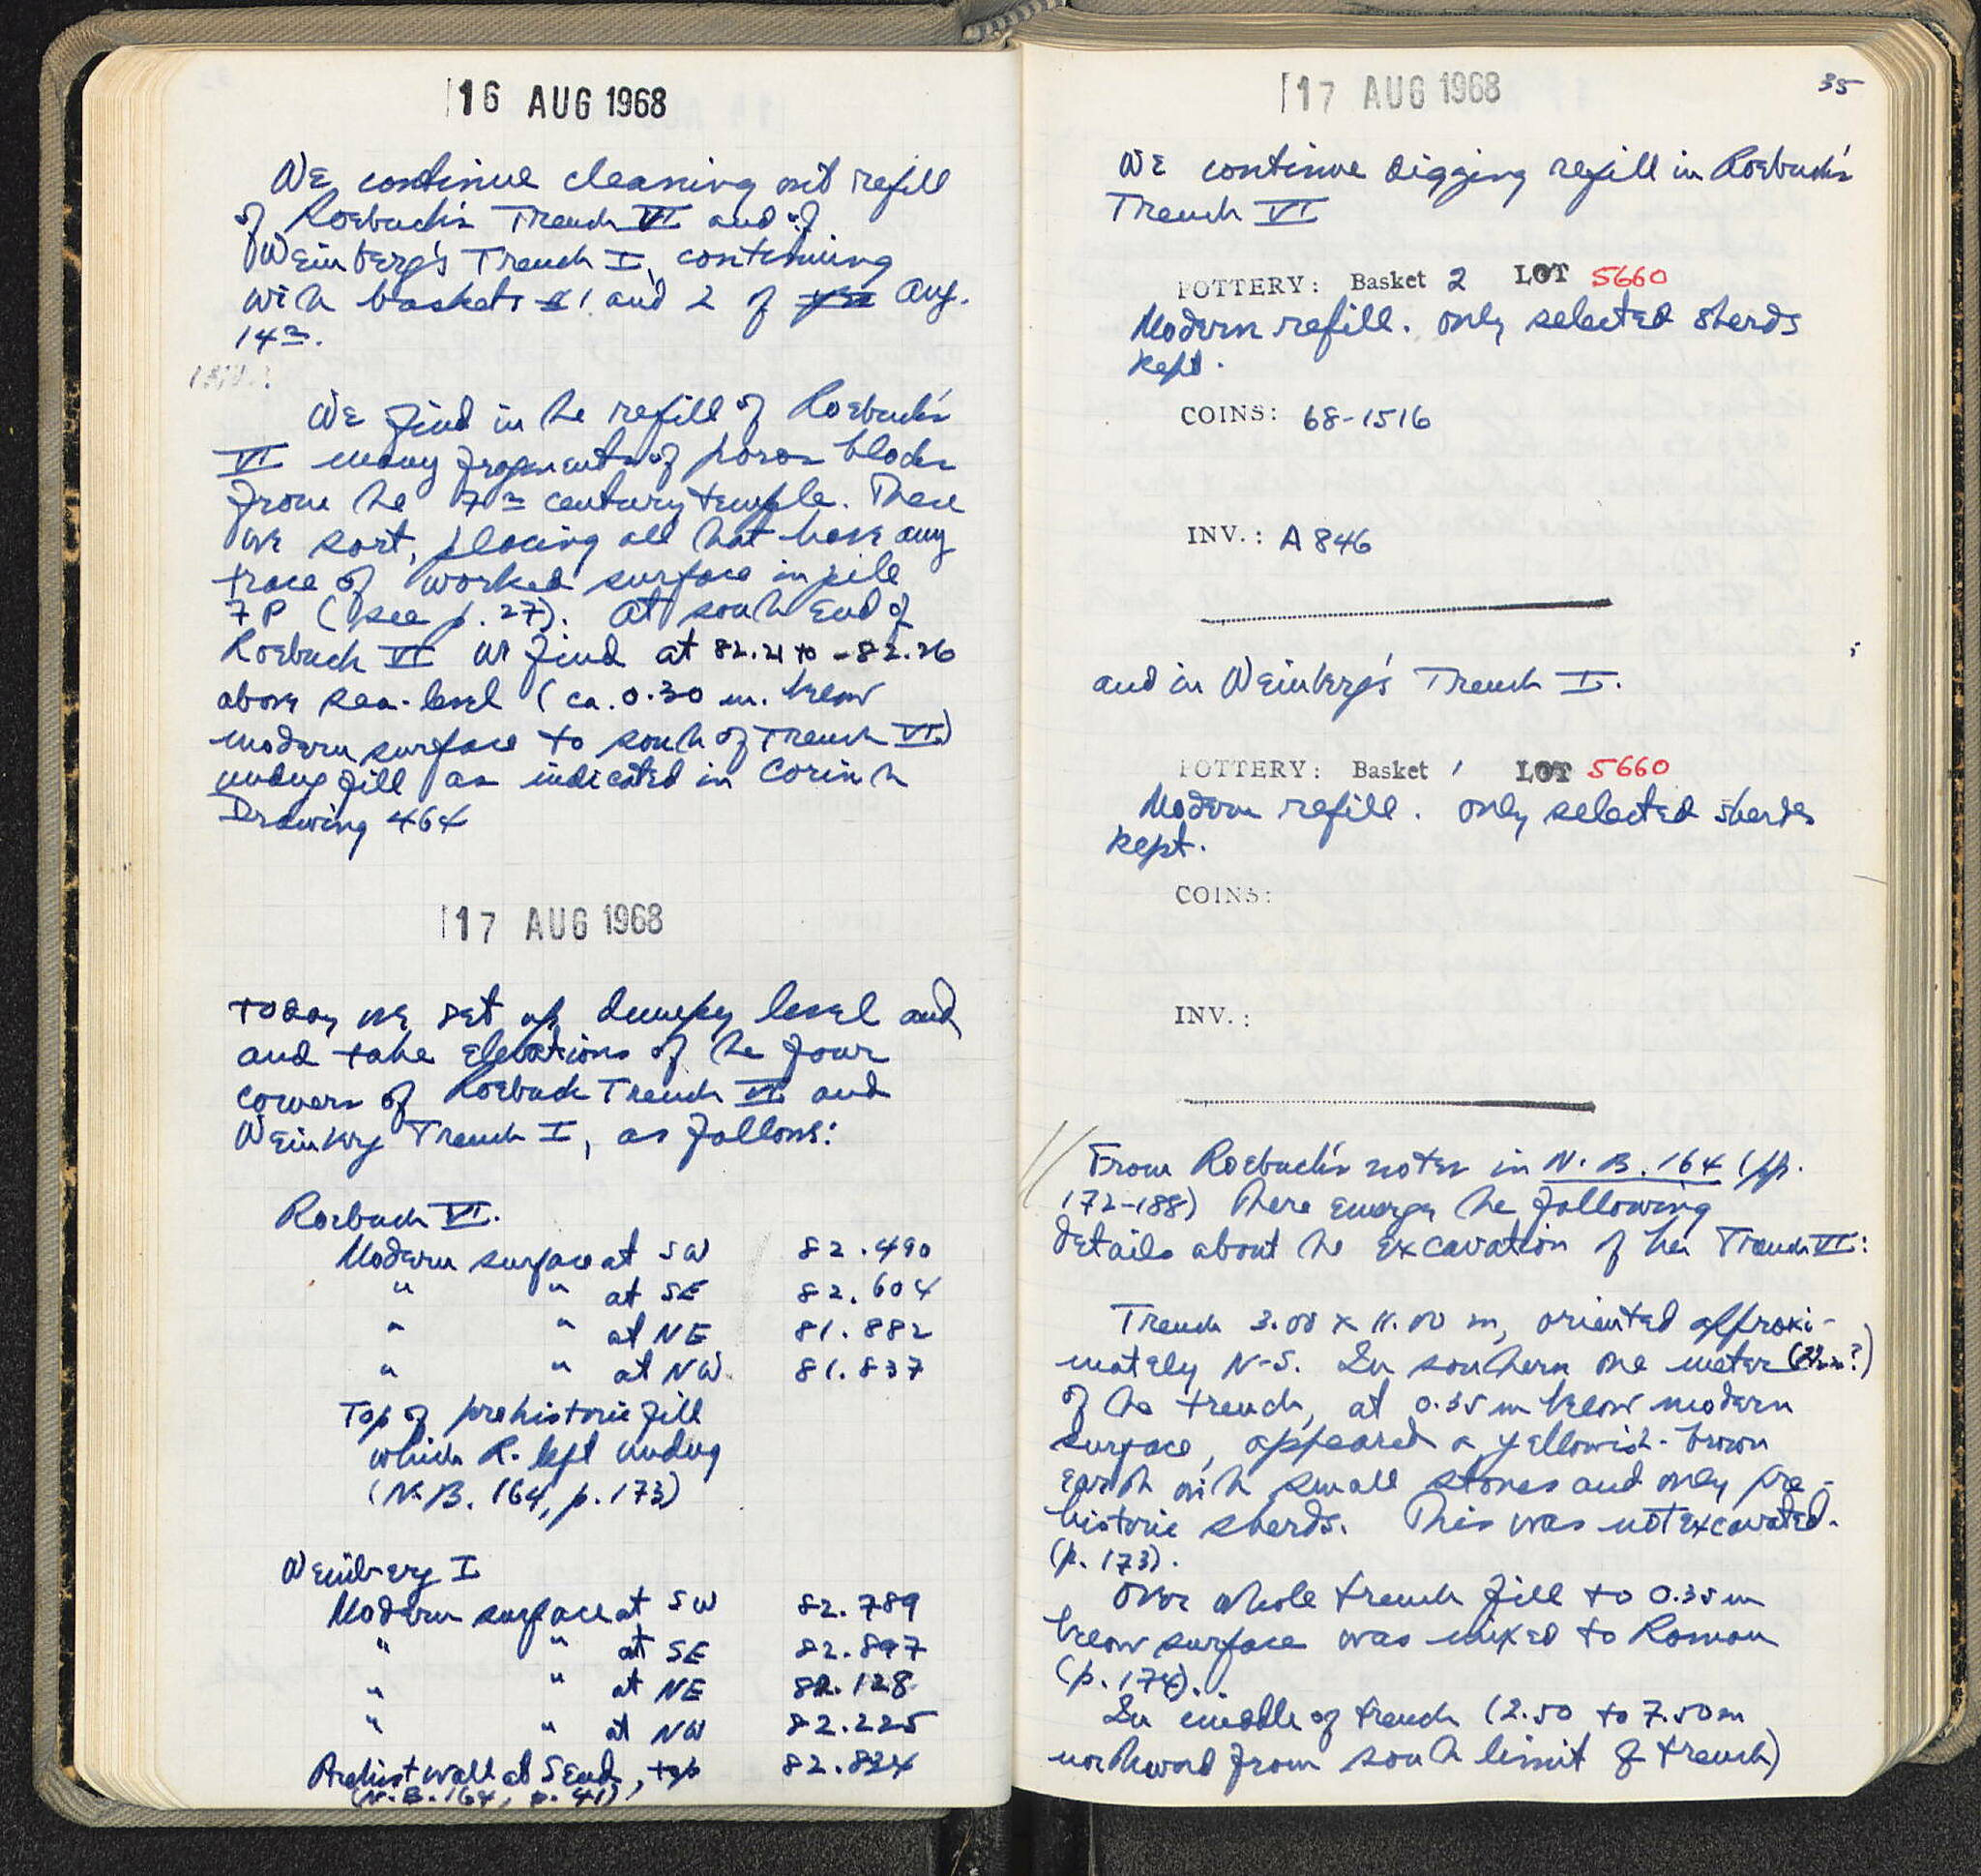 16 AUG 1968
We continue cleaning out refill
of Roebuck's Trench VI and of
Weinberg's Trench I, continuing
with baskets 1 and 2 of Aug.
14th.
We find in the refill of Roebuck's
VI many fragments of poros blocks
from the 7th century temple. These
we sort, placing all that have any
trace of worked surface in pile
7P (see p. 27). At south end of
Roebuck VI we find at 82.21 to -82.26
above sea-level (ca. 0.30 m. below
modern surface to south of Trench VI)
undug fill as indicated in Corinth
Drawing 464
17 AUG 1968
Today we set up dumpy level and
and take elevations of the four
corners of Roebuck Trench VI and
Weinberg Trench I, as follows:
Roebuck VI.
Modern surface at SW 82.490
" " at SE 82.604
" " at NE 81.882
" " at NW 81.837
Top of prehistoric fill
which R. left undug
(N.B. 164, p. 173)
Weinberg I
Modern surface at SW 82.789
" " at SE 82.897
" " at NE 82.128
" " at NW 82.225
Prehist wall at S End, top 82.824
(N.B. 164, p. 41)
17 AUG 1968
35
We continue digging refill in Roebuck's
Trench VI
POTTERY: Basket 2 LOT 5660
Modern refill. Only selected sherds
kept.
COINS: 68-1516
INV.: A 846
and in Weinberg's Trench I.
POTTERY: Basket 1 LOT 5660
Modern refill. Only selected sherds
kept.
COINS:
INV.:
From Roebuck's notes in N.B. 164 (pp.
172-188) there emerge the following
details about the excavation of her Trench VI:
Trench 3.00 x 11.00 m, oriented approxi-
mately N-S. In southern one meter
of the trench, at 0.35 m below modern
surface, appeared a yellowish-brown
earth with small stones and only pre-
historic sherds. This was not excavated.
(p. 173).
Over whole trench fill to 0.35 m
below surface was mixed to Roman
(p. 174).
In middle of trench (2.50 to 7.50 m
northward from south limit of trench)